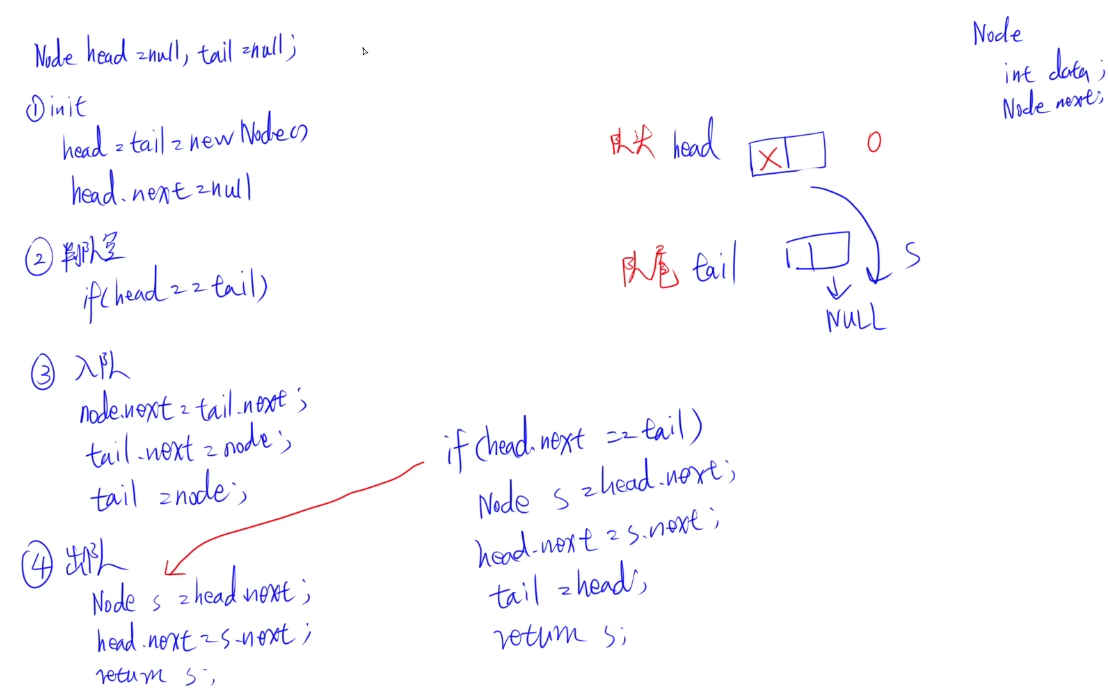 Node head=null, tail=null;
① init
head=tail=new Node()
head.next=null
② 判队空
if(head==tail)
③ 入队
node.next=tail.next;
tail.next=node;
tail=node;
④ 出队
Node s=head.next;
head.next=s.next;
return s;
if(head.next==tail)
Node s=head.next;
head.next=s.next;
tail=head;
return s;
队头 head X 0
队尾 tail S
NULL
Node
int data;
Node next;